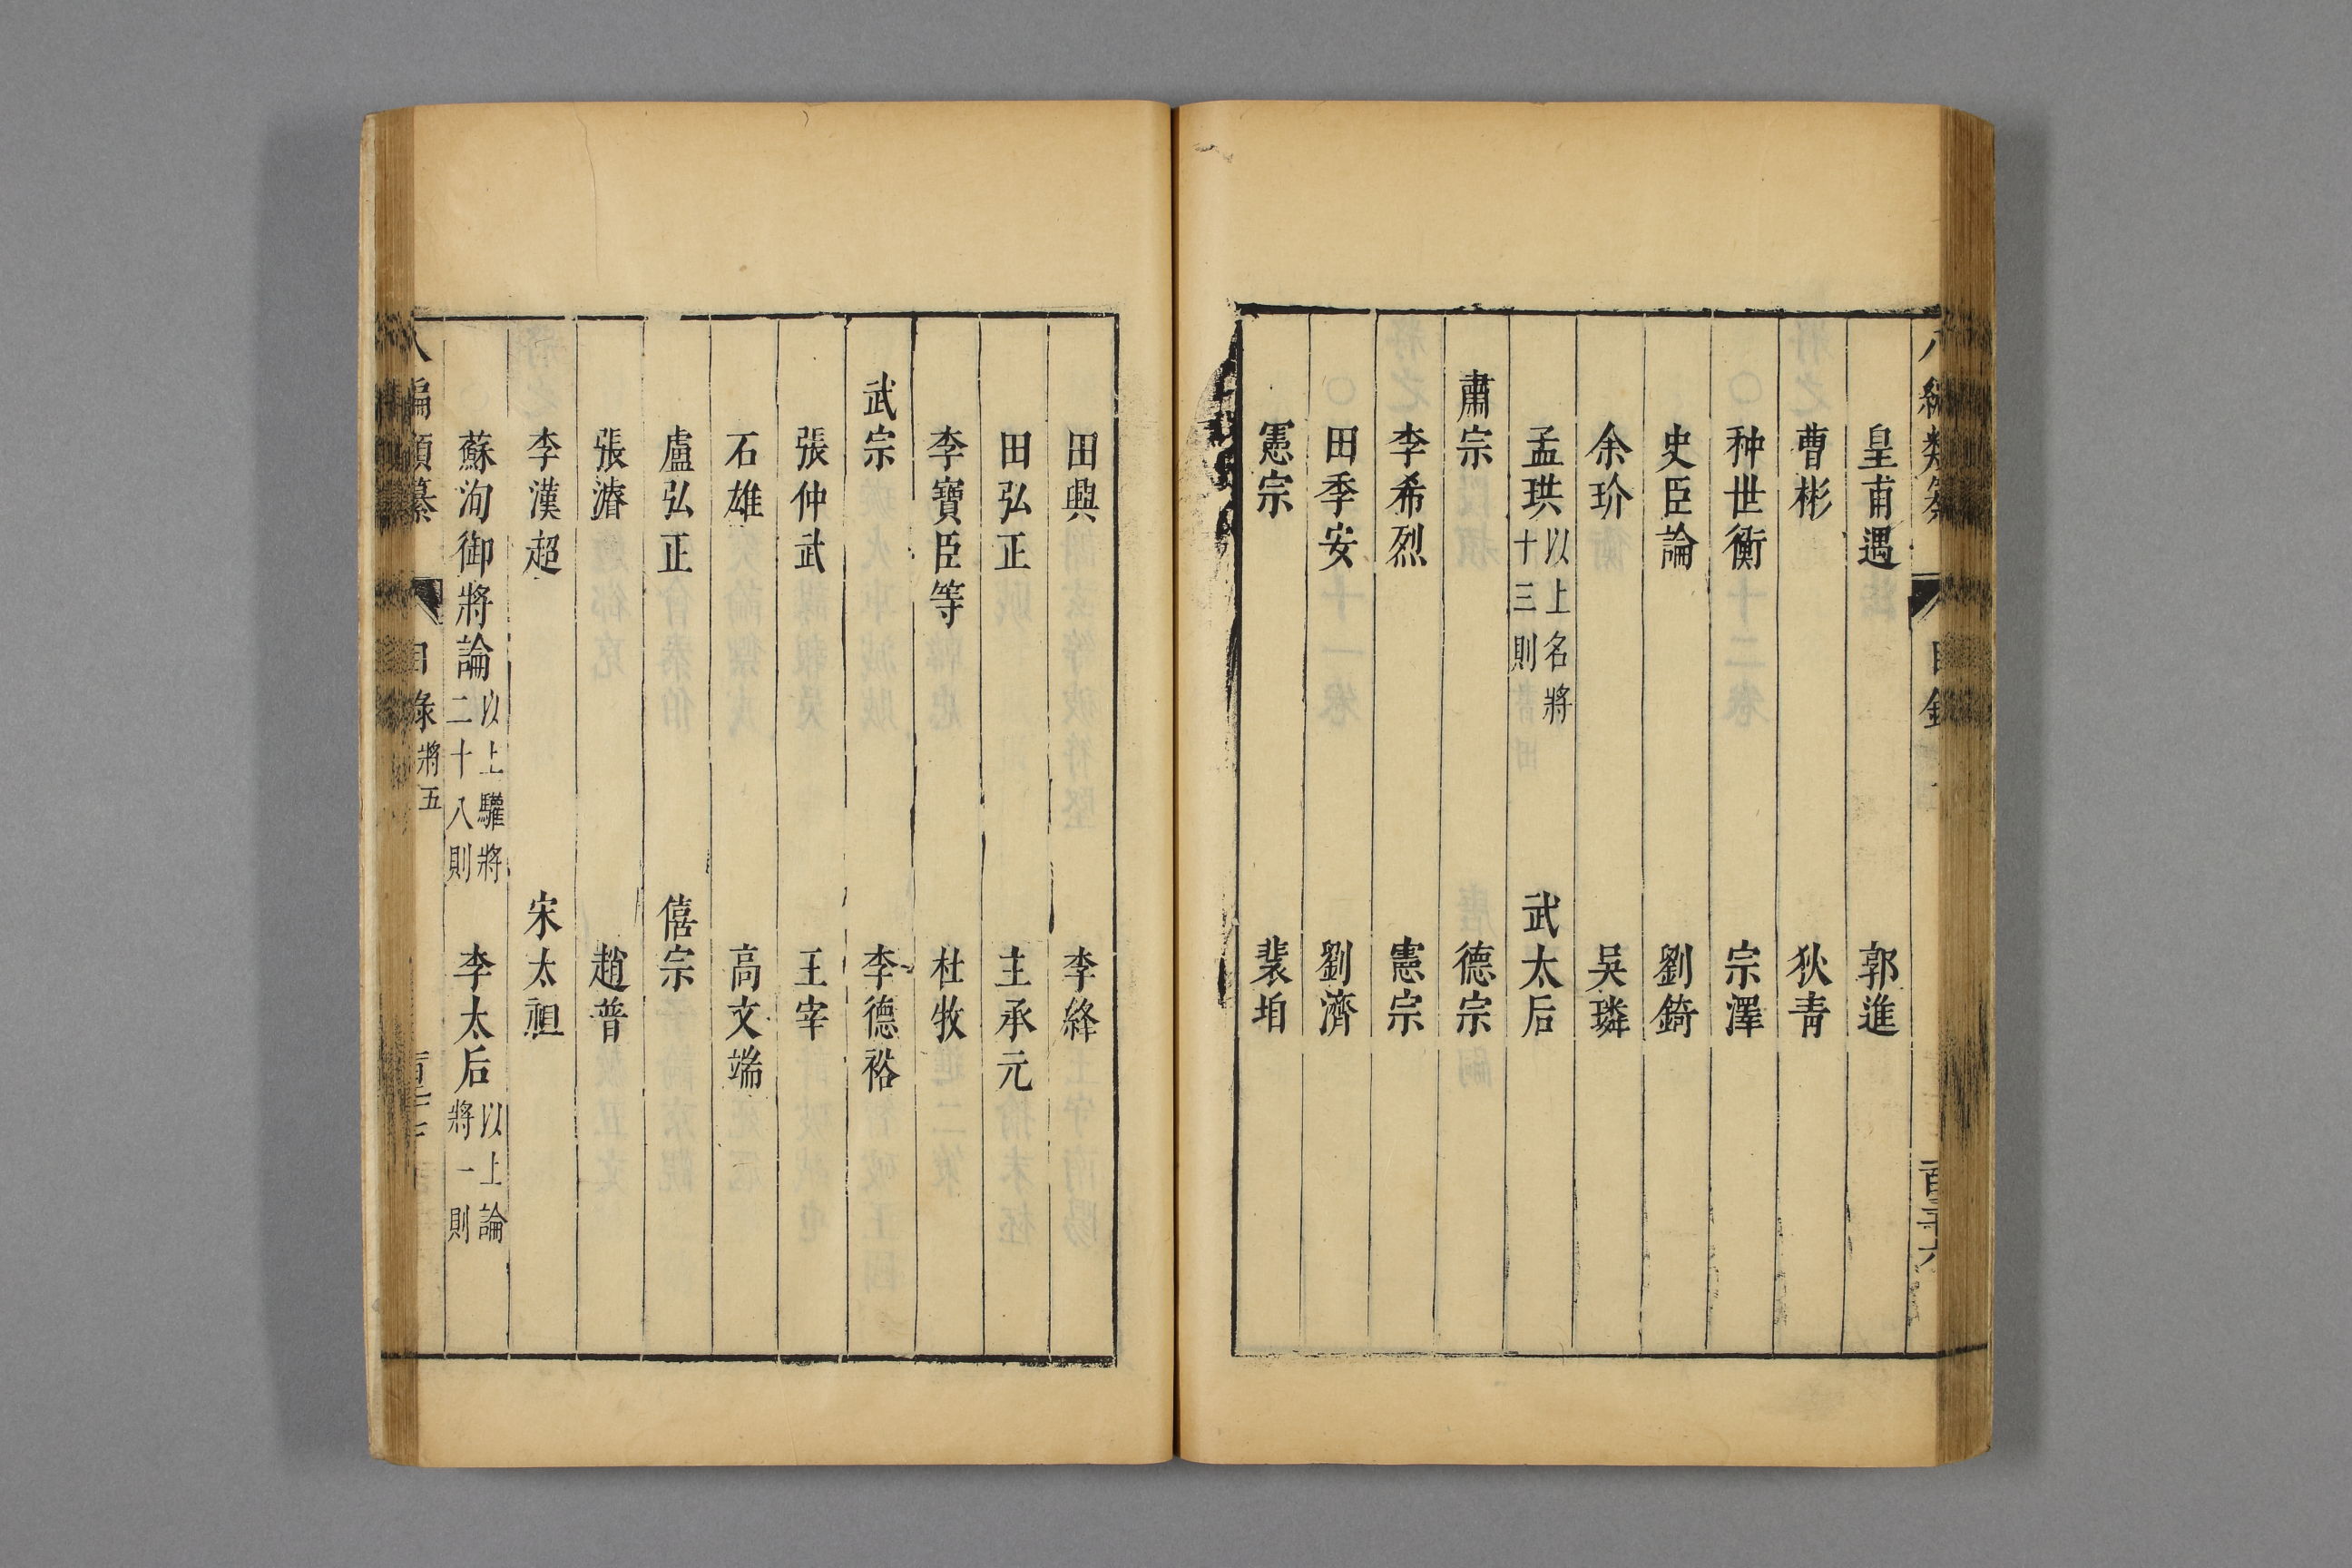 皇甫遇　郭進
曹彬　狄青
种世衡　宗澤
史臣論　劉錡
余玠　吳璘
孟珙以上名將十三則　武太后
肅宗　德宗
李希烈　憲宗
田季安　劉濟
憲宗　裴垍
田興　李絳
田弘正　王承元
李寶臣等　杜牧
武宗　李德裕
張仲武　王宰
石雄　高文端
盧弘正　僖宗
張濬　趙普
李漢超　宋太祖
蘇洵御將論以上驩將二十八則　李太后以上論將一則
八編類纂　目錄　將五